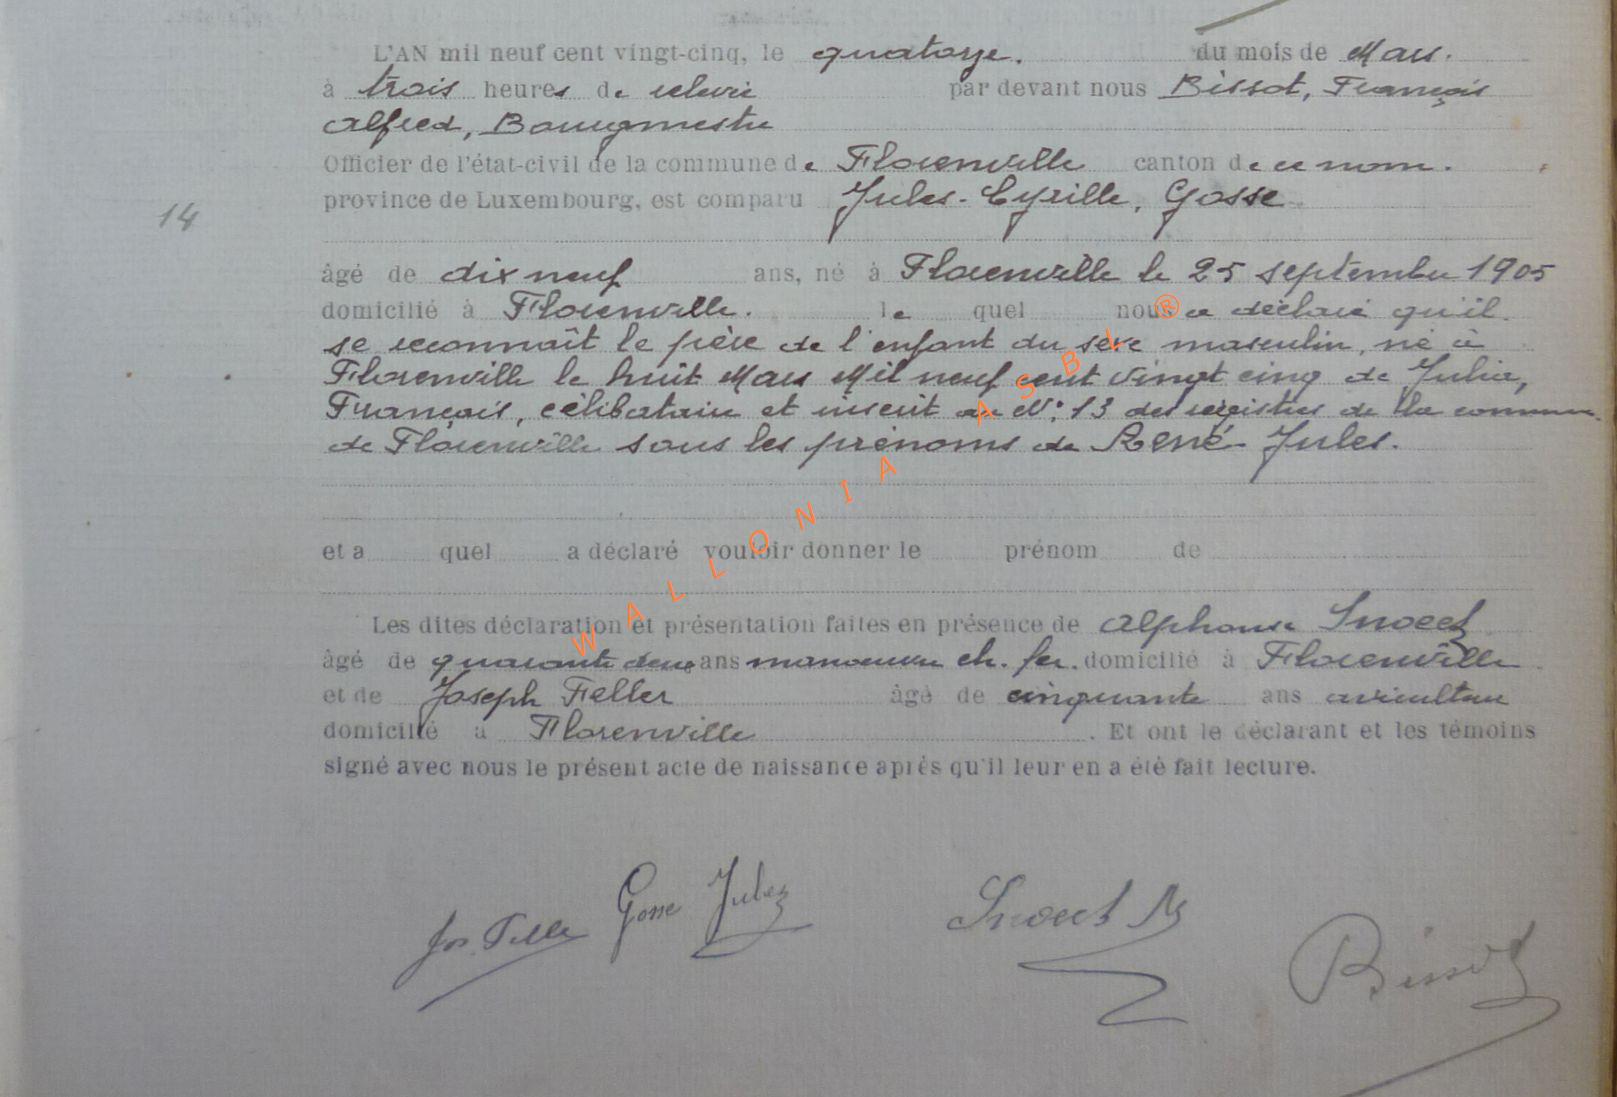 L'AN mil neuf cent vingt-cinq, le quatorze. du mois de Mars.
à trois heures de relevée par devant nous Bissot, François
Alfred, Bourgmestre
Officier de l'état-civil de la commune de Florenville canton de ce nom.
province de Luxembourg, est comparu Jules-Cyrille, Gosse
14
âgé de dix neuf ans, né à Florenville le 25 septembre 1905
domicilié à Florenville. le quel nous a déclaré qu'il
se reconnaît le père de l'enfant du sexe masculin, né à
Florenville le huit Mars Mil neuf cent vingt cinq de Julia,
François, célibataire et inscrit au N° 13 des registres de la commune
de Florenville sous les prénoms de René-Jules.
et a quel a déclaré vouloir donner le prénom de
Les dites déclaration et présentation faites en présence de Alphonse Snoeck
âgé de quarante deux ans manoeuvre ch. fer. domicilié à Florenville
et de Joseph Feller âgé de cinquante ans aviculteur
domicilié à Florenville . Et ont le déclarant et les témoins
signé avec nous le présent acte de naissance après qu'il leur en a été fait lecture.
Jos. Feller Gosse Jules Bissot
WALLONIA ASBL ®